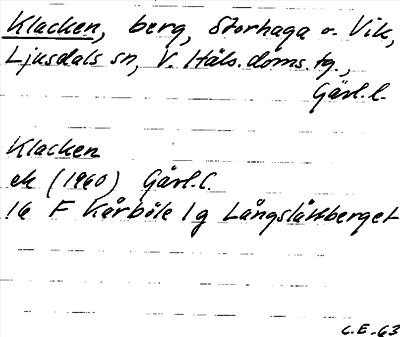 Klacken, berg, Storhaga o. Vik,
Ljusdals sn, V. Häls. doms. tg.,
Gävl. l.
Klacken
ek (1960) Gävl. l.
16 F Kårböle 1 g Långslåttberget
C.E.-63